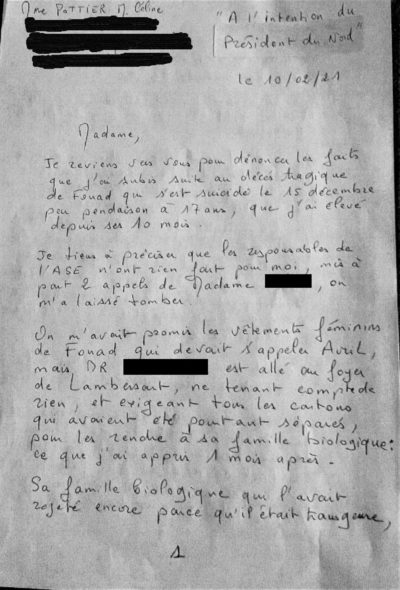 Mme POTTIER M. Céline
"A l'intention du
Président du Nord"
le 10/02/21
Madame,
Je reviens vers vous pour dénoncer les faits
que j'ai subis suite au décès tragique
de Fouad qui s'est suicidé le 15 décembre
par pendaison à 17 ans, que j'ai élevé
depuis ses 10 mois.
Je tiens à préciser que les responsables de
l'ASE n'ont rien fait pour moi, mis à
part 2 appels de Madame , on
m'a laissé tomber.
On m'avait promis les vêtements féminins
de Fouad qui devait s'appeler Avril,
mais, DR est allé au foyer
de Lambersart, ne tenant compte de
rien, et exigeant tous les cartons
qui avaient été pourtant séparés,
pour les rendre à sa famille biologique:
ce que j'ai appris 1 mois après.
Sa famille biologique qui l'avait
rejeté encore parce qu'il était transgenre,
1